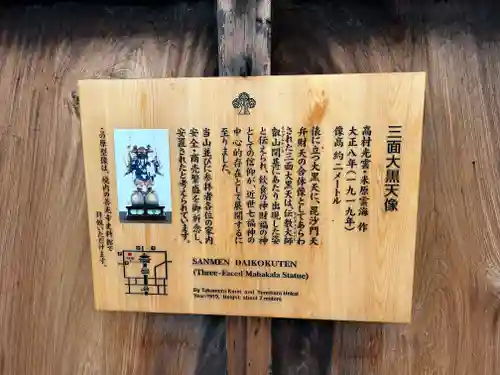 三面大黒天像
高村光雲・米原雲海 作
大正八年(一九一九)
像高 約二メートル
俵に立つ大黒天に、毘沙門天
弁財天の合体像としてあらわ
された三面大黒天は、伝教大師
叡山開基にあたり出現した姿
と伝えられ、飲食の神財福の神
としての信仰が、近世七福神の
中心的存在として展開するに
至りました。
当山並びに参拝者各位の家内
安全・商売繁盛を御祈念し、
安置されたと考えられています。
この原型像は、境内の善光寺史料館で
拝観いただけます。
SANMEN DAIKOKUTEN
(Three-Faced Mahakala Statue)
By Takamura Koun and Yonehara Unkai
Year:1919, Height: about 2 meters